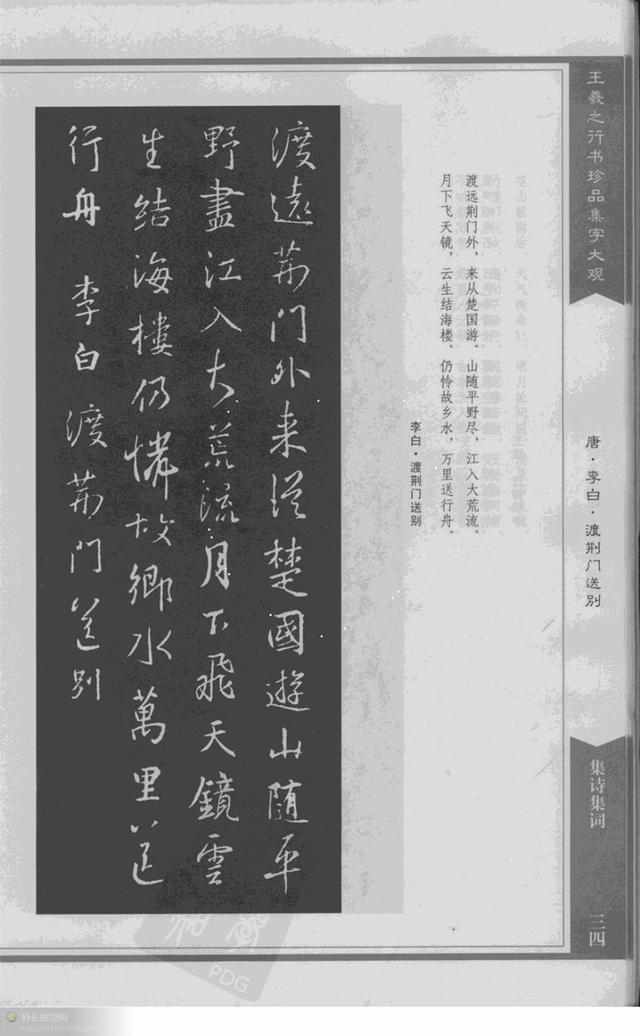 王羲之行书珍品集字大观
唐·李白·渡荆门送别
集诗集词
三四
渡远荆门外，来从楚国游。山随平野尽，江入大荒流。
月下飞天镜，云生结海楼。仍怜故乡水，万里送行舟。
李白·渡荆门送别
渡遠荊门外来從楚國遊山随平
野盡江入大荒流月下飛天鏡雲
生结海樓仍憐故鄉水萬里送
行舟 李白 渡荊門送别
PDG
科长的空间